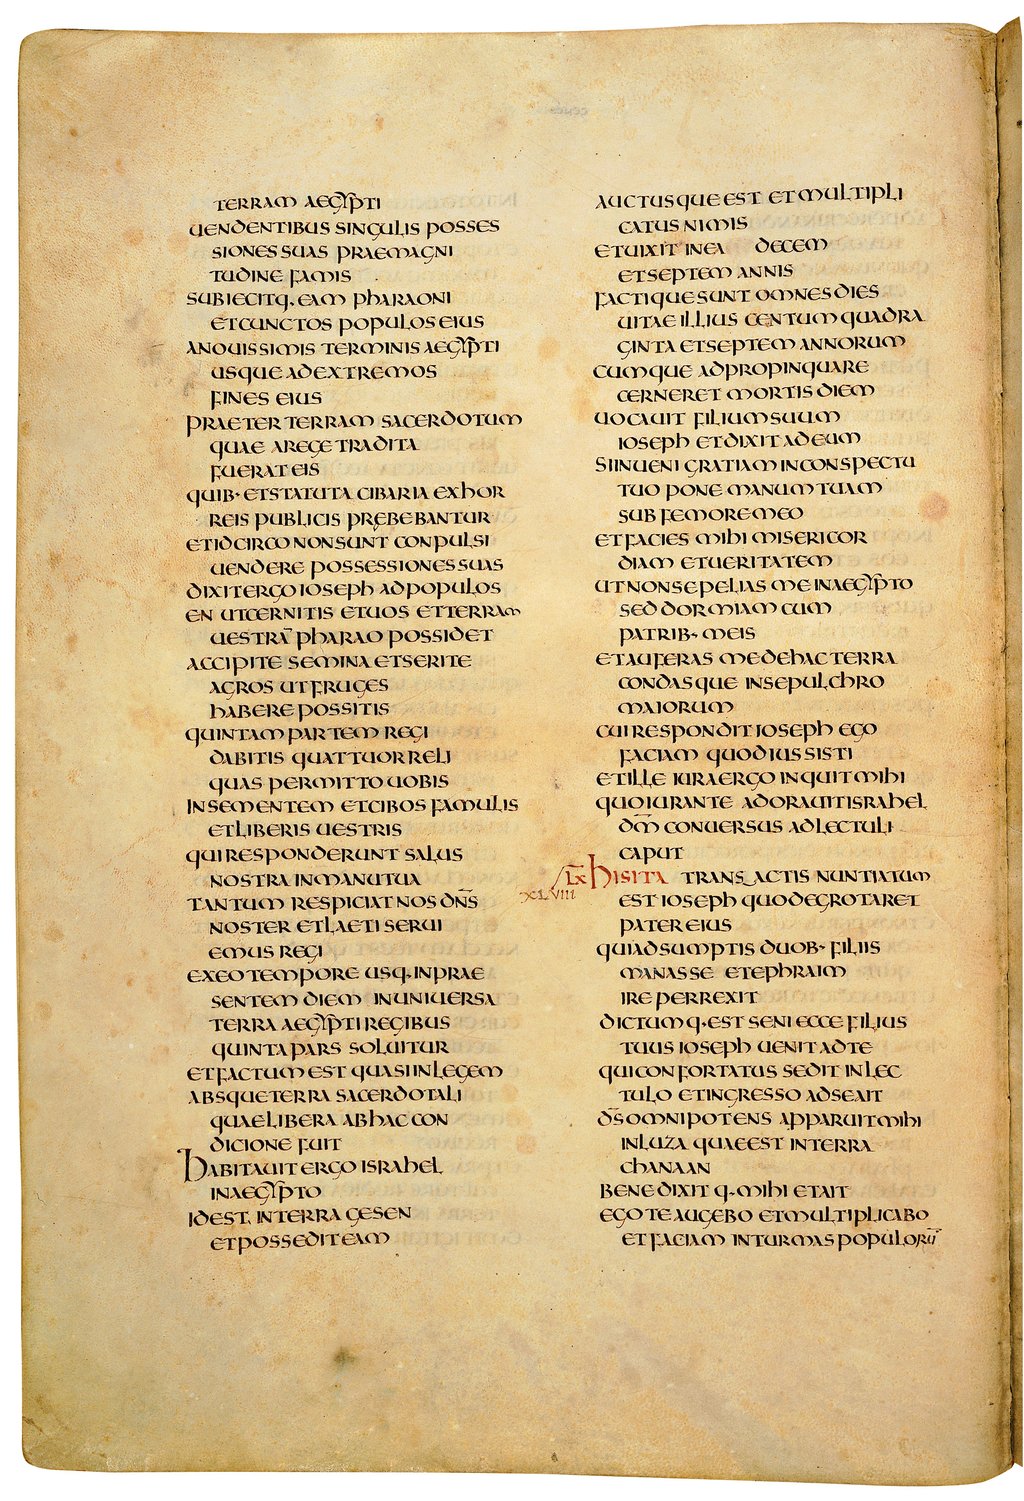 TERRAM AEGYPTI
UENDENTIBUS SINGULIS POSSES
SIONES SUAS PRAEMAGNI
TUDINE FAMIS
SUBIECITQ· EAM PHARAONI
ET CUNCTOS POPULOS EIUS
A NOUISSIMIS TERMINIS AEGYPTI
USQUE AD EXTREMOS
FINES EIUS
PRAETER TERRAM SACERDOTUM
QUAE A REGE TRADITA
FUERAT EIS
QUIB· ET STATUTA CIBARIA EX HOR
REIS PUBLICIS PRĘBEBANTUR
ET IDCIRCO NON SUNT CONPULSI
UENDERE POSSESSIONES SUAS
DIXIT ERGO IOSEPH AD POPULOS
EN UT CERNITIS ET UOS ET TERRAM
UESTRĀ PHARAO POSSIDET
ACCIPITE SEMINA ET SERITE
AGROS UT FRUGES
HABERE POSSITIS
QUINTAM PARTEM REGI
DABITIS QUATTUOR RELI
QUAS PERMITTO UOBIS
IN SEMENTEM ET CIBOS FAMULIS
ET LIBERIS UESTRIS
QUI RESPONDERUNT SALUS
NOSTRA IN MANU TUA
TANTUM RESPICIAT NOS DN̄S
NOSTER ET LAETI SERUI
EMUS REGI
EX EO TEMPORE USQ· IN PRAE
SENTEM DIEM IN UNIUERSA
TERRA AEGYPTI REGIBUS
QUINTA PARS SOLUITUR
ET FACTUM EST QUASI IN LEGEM
ABSQUE TERRA SACERDOTALI
QUAE LIBERA AB HAC CON
DICIONE FUIT
HABITAUIT ERGO ISRAHEL
IN AEGYPTO
ID EST, IN TERRA GESEN
ET POSSEDIT EAM
AUCTUSQUE EST ET MULTIPLI
CATUS NIMIS
ET UIXIT IN EA DECEM
ET SEPTEM ANNIS
FACTIQUE SUNT OMNES DIES
UITAE ILLIUS CENTUM QUADRA
GINTA ET SEPTEM ANNORUM
CUMQUE ADPROPINQUARE
CERNERET MORTIS DIEM
UOCAUIT FILIUM SUUM
IOSEPH ET DIXIT AD EUM
SI INUENI GRATIAM IN CONSPECTU
TUO PONE MANUM TUAM
SUB FEMORE MEO
ET FACIES MIHI MISERICOR
DIAM ET UERITATEM
UT NON SEPELIAS ME IN AEGYPTO
SED DORMIAM CUM
PATRIB· MEIS
ET AUFERAS ME DE HAC TERRA
CONDASQUE IN SEPULCHRO
MAIORUM
CUI RESPONDIT IOSEPH EGO
FACIAM QUOD IUSSISTI
ET ILLE IURA ERGO INQUIT MIHI
QUO IURANTE ADORAUIT ISRAHEL
DM̄ CONUERSUS AD LECTULI
CAPUT
LX HIS ITA TRANSACTIS NUNTIATUM
XLVIII EST IOSEPH QUOD EGROTARET
PATER EIUS
QUI ADSUMPTIS DUOB· FILIIS
MANASSE ET EPHRAIM
IRE PERREXIT
DICTUMQ· EST SENI ECCE FILIUS
TUUS IOSEPH UENIT AD TE
QUI CONFORTATUS SEDIT IN LEC
TULO ET INGRESSO AD SE AIT
D̄S OMNIPOTENS APPARUIT MIHI
IN LUZA QUAE EST IN TERRA
CHANAAN
BENEDIXITQ· MIHI ET AIT
EGO TE AUGEBO ET MULTIPLICABO
ET FACIAM IN TURMAS POPULORŪ